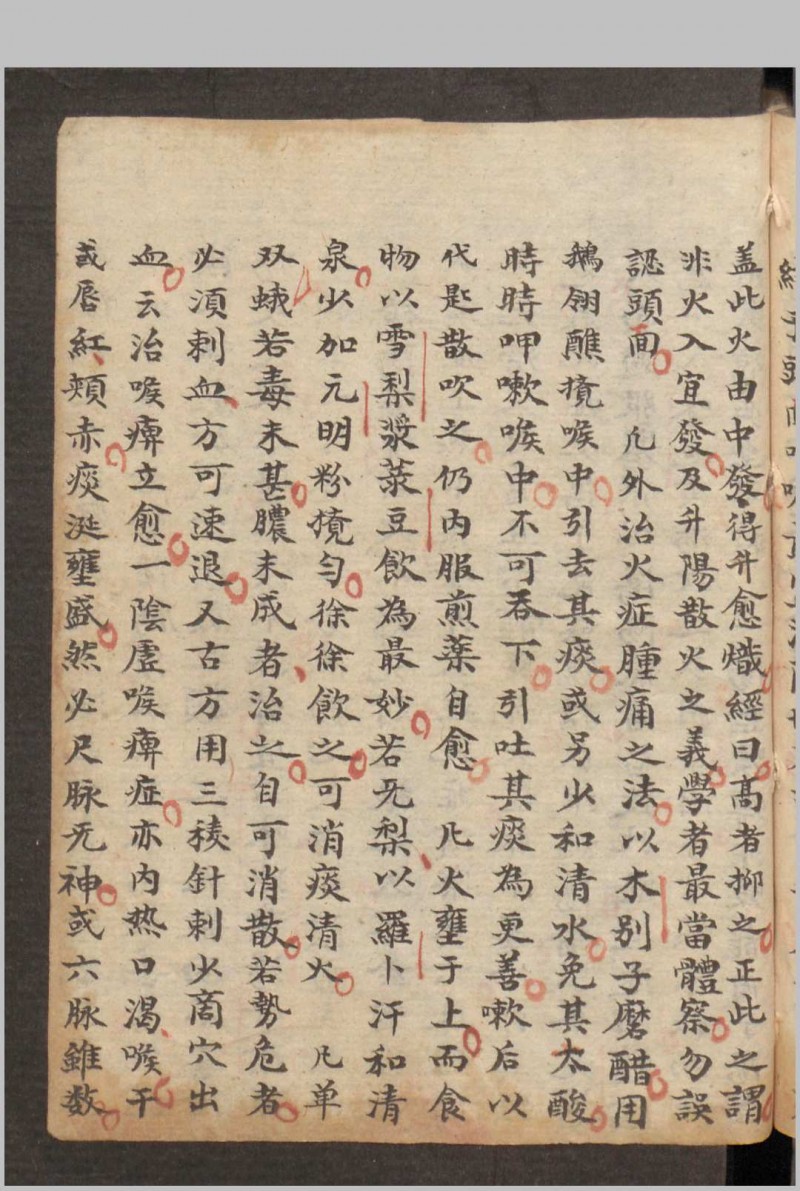 盖此火由中發得升愈熾經曰髙者抑之正此之謂
非火入宜發及升陽散火之義學者最當體察勿誤
認頭面 凢外治火症腫痛之法以木別子磨醋用
鵝翎蘸搅喉中引去其痰或另少和清水免其太酸
時時呷嗽喉中不可吞下引吐其痰為更善嗽后以
代匙散吹之仍内服煎藥自愈 凢火壅于上而食
物以雪梨漿菉豆飲為最妙若旡梨以羅卜汗和清
泉少加元明粉搅勻徐徐飲之可消痰清火 凢单
双蛾若毒未甚膿未成者治之自可消散若勢危者
必須刺血方可速退又古方用三稜針刺少商穴出
血云治喉痺立愈一陰虛喉痺症亦内热口渴喉干
或唇紅頬赤痰涎壅盛然必尺脉旡神或六脉雖数